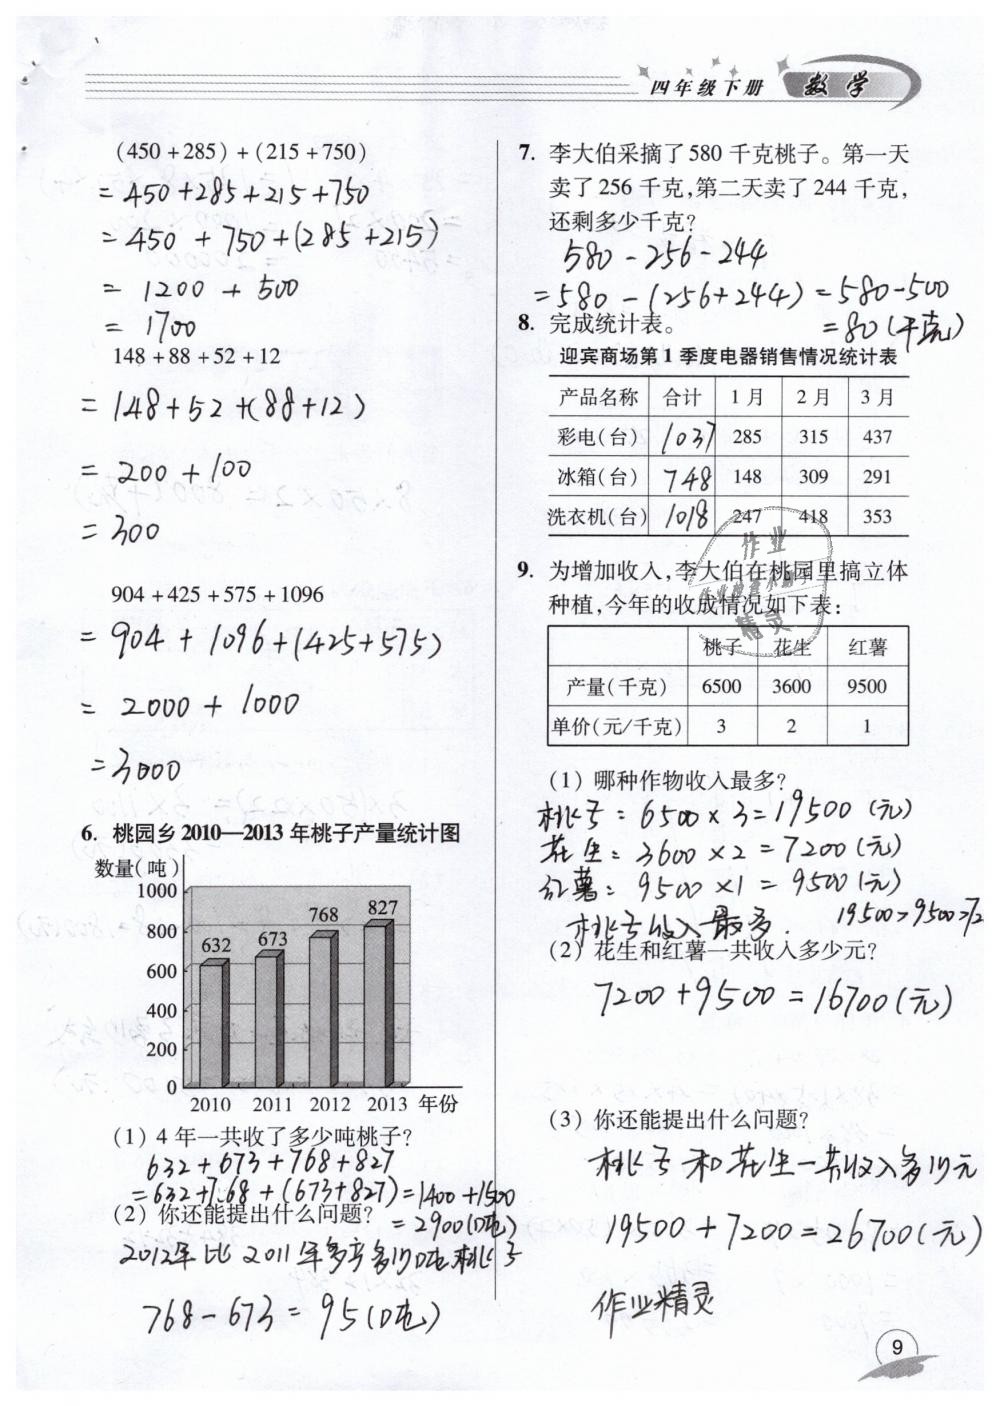 四年级下册 数学
(450+285)+(215+750)
=450+285+215+750
=450+750+(285+215)
=1200+500
=1700
148+88+52+12
=148+52+(88+12)
=200+100
=300
904+425+575+1096
=904+1096+(425+575)
=2000+1000
=3000
6. 桃园乡2010—2013年桃子产量统计图
数量(吨)
1000
800
600
400
200
0
632 673 768 827
2010 2011 2012 2013 年份
(1) 4年一共收了多少吨桃子?
632+673+768+827
=632+768+(673+827)=1400+1500
=2900(吨)
(2) 你还能提出什么问题?
2012年比2011年多产多少吨桃子
768-673=95(吨)
7. 李大伯采摘了580千克桃子。第一天
卖了256千克,第二天卖了244千克,
还剩多少千克?
580-256-244
=580-(256+244)=580-500
=80(千克)
8. 完成统计表。
迎宾商场第1季度电器销售情况统计表
产品名称 合计 1月 2月 3月
彩电(台) 1037 285 315 437
冰箱(台) 748 148 309 291
洗衣机(台) 1018 247 418 353
作业
作业检查小助手
精灵
9. 为增加收入,李大伯在桃园里搞立体
种植,今年的收成情况如下表:
桃子 花生 红薯
产量(千克) 6500 3600 9500
单价(元/千克) 3 2 1
(1) 哪种作物收入最多?
桃子:6500×3=19500(元)
花生:3600×2=7200(元)
红薯:9500×1=9500(元)
19500>9500>72
桃子收入最多.
(2) 花生和红薯一共收入多少元?
7200+9500=16700(元)
(3) 你还能提出什么问题?
桃子和花生一共收入多少元
19500+7200=26700(元)
作业精灵
9